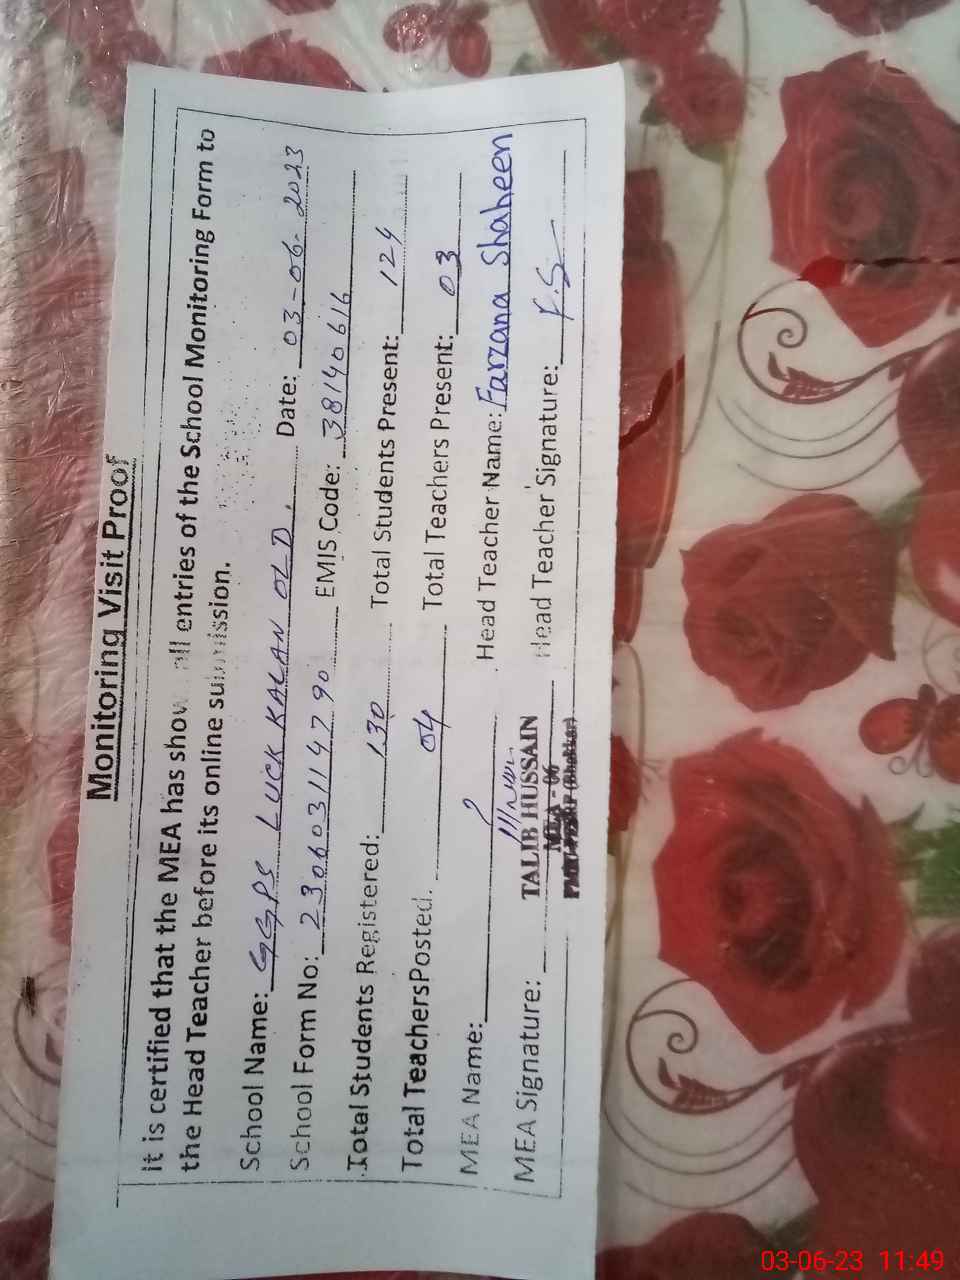 Monitoring Visit Proof
It is certified that the MEA has show all entries of the School Monitoring Form to
the Head Teacher before its online submission.
School Name: GGPS LUCK KALAN OLD. Date: 03-06-2023
School Form No: 230603114790 EMIS Code: 38140616
Total Students Registered: 130 Total Students Present: 124
Total Teachers Posted. 04 Total Teachers Present: 03
MEA Name: Head Teacher Name: Farzana Shaheen
MEA Signature: TALIB HUSSAIN Head Teacher Signature: F.S
MEA - 06
(Bhakkar)
03-06-23 11:49